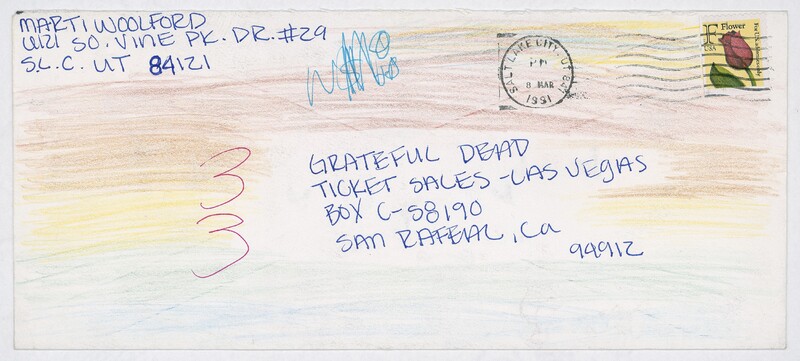 MARTI WOOLFORD
6121 SO. VINE PK. DR. #29
S.L.C. UT 84121
F Flower
USA
For U.S. addresses only
SALT LAKE CITY, UT 841
PM
8 MAR
1991
3
3
GRATEFUL DEAD
TICKET SALES - LAS VEGAS
BOX C-S8190
SAN RAFEIAL, Ca
94912